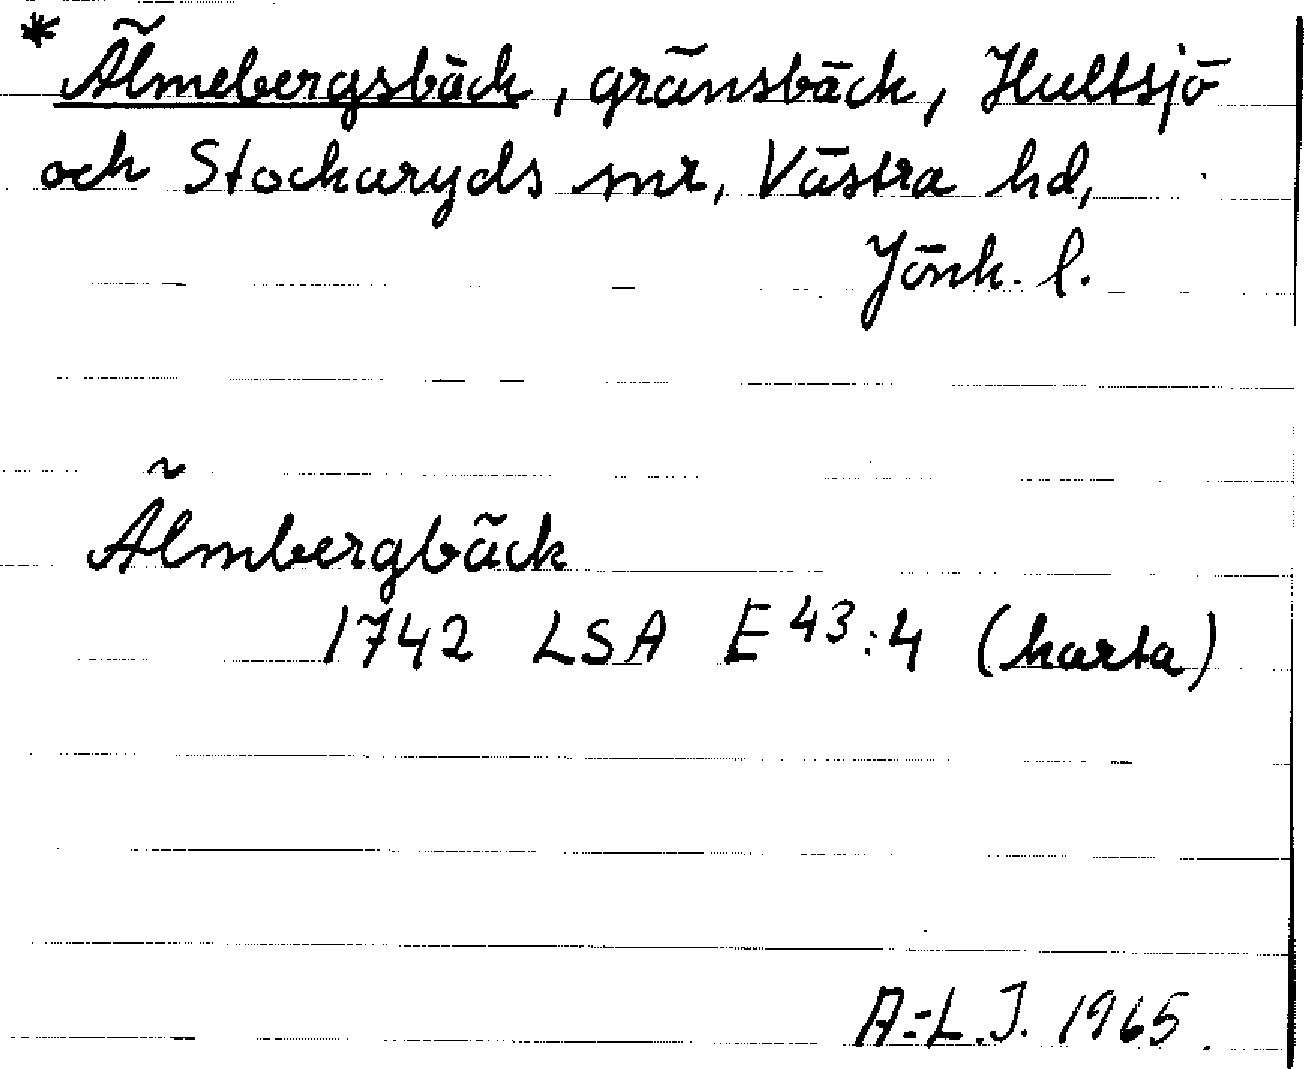 * Älmebergsbäck, gränsbäck, Hultsjö
och Stockaryds snr, Västra hd,
Jönk. l.
Älmbergbäck
1742 LSA E 43:4 (karta)
A.-L.J. 1965.